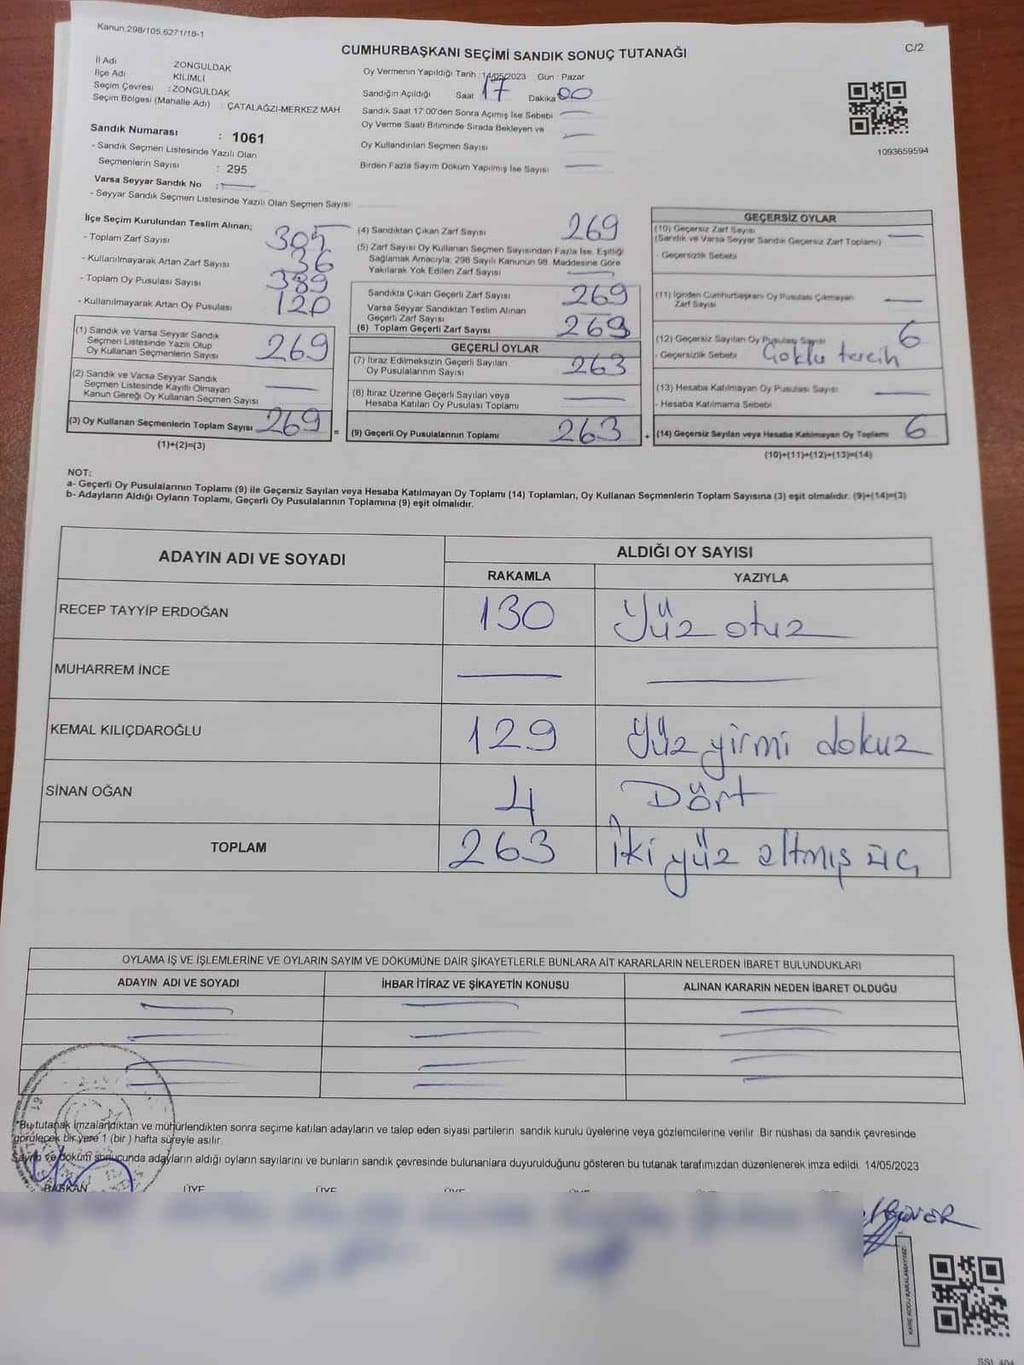 Kanun 298/105,6271/18-1
C/2
CUMHURBAŞKANI SEÇİMİ SANDIK SONUÇ TUTANAĞI
İl Adı ZONGULDAK
İlçe Adı KİLİMLİ
Seçim Çevresi : ZONGULDAK
Seçim Bölgesi (Mahalle Adı) : ÇATALAĞZI-MERKEZ MAH
Sandık Numarası : 1061
- Sandık Seçmen Listesinde Yazılı Olan
Seçmenlerin Sayısı : 295
Varsa Seyyar Sandık No :
- Seyyar Sandık Seçmen Listesinde Yazılı Olan Seçmen Sayısı:
Oy Vermenin Yapıldığı Tarih : 14/05/2023 Gün : Pazar
Sandığın Açıldığı Saat 17 Dakika 00
Sandık Saat 17:00'den Sonra Açımış İse Sebebi
Oy Verme Saati Bitiminde Sırada Bekleyen ve
Oy Kullandırılan Seçmen Sayısı
Birden Fazla Sayım Döküm Yapılmış İse Sayısı
1093659594
İlçe Seçim Kurulundan Teslim Alınan;
- Toplam Zarf Sayısı 305
- Kullanılmayarak Artan Zarf Sayısı 36
- Toplam Oy Pusulası Sayısı 389
- Kullanılmayarak Artan Oy Pusulası 120
(1) Sandık ve Varsa Seyyar Sandık
Seçmen Listesinde Yazılı Olup
Oy Kullanan Seçmenlerin Sayısı 269
(2) Sandık ve Varsa Seyyar Sandık
Seçmen Listesinde Kayıtlı Olmayan
Kanun Gereği Oy Kullanan Seçmen Sayısı
(3) Oy Kullanan Seçmenlerin Toplam Sayısı 269 =
(1)+(2)=(3)
(4) Sandıktan Çıkan Zarf Sayısı 269
(5) Zarf Sayısı Oy Kullanan Seçmen Sayısından Fazla İse, Eşitliği
Sağlamak Amacıyla, 298 Sayılı Kanunun 98. Maddesine Göre
Yakılarak Yok Edilen Zarf Sayısı
Sandıkta Çıkan Geçerli Zarf Sayısı 269
Varsa Seyyar Sandıktan Teslim Alınan
Geçerli Zarf Sayısı
(6) Toplam Geçerli Zarf Sayısı 269
GEÇERLİ OYLAR
(7) İtiraz Edilmeksizin Geçerli Sayılan
Oy Pusulalarının Sayısı 263
(8) İtiraz Üzerine Geçerli Sayılan veya
Hesaba Katılan Oy Pusulası Toplamı
(9) Geçerli Oy Pusulalarının Toplamı 263 +
GEÇERSİZ OYLAR
(10) Geçersiz Zarf Sayısı
(Sandık ve Varsa Seyyar Sandık Geçersiz Zarf Toplamı)
- Geçersizlik Sebebi
(11) İçinden Cumhurbaşkanı Oy Pusulası Çıkmayan
Zarf Sayısı
(12) Geçersiz Sayılan Oy Pusulası Sayısı 6
- Geçersizlik Sebebi Çoklu tercih
(13) Hesaba Katılmayan Oy Pusulası Sayısı
- Hesaba Katılmama Sebebi
(14) Geçersiz Sayılan veya Hesaba Katılmayan Oy Toplamı 6
(10)+(11)+(12)+(13)=(14)
NOT:
a- Geçerli Oy Pusulalarının Toplamı (9) ile Geçersiz Sayılan veya Hesaba Katılmayan Oy Toplamı (14) Toplamları, Oy Kullanan Seçmenlerin Toplam Sayısına (3) eşit olmalıdır. (9)+(14)=(3)
b- Adayların Aldığı Oyların Toplamı, Geçerli Oy Pusulalarının Toplamına (9) eşit olmalıdır.
ADAYIN ADI VE SOYADI ALDIĞI OY SAYISI
RAKAMLA YAZIYLA
RECEP TAYYİP ERDOĞAN 130 Yüz otuz
MUHARREM İNCE
KEMAL KILIÇDAROĞLU 129 Yüz yirmi dokuz
SİNAN OĞAN 4 Dört
TOPLAM 263 İki yüz altmış üç
OYLAMA İŞ VE İŞLEMLERİNE VE OYLARIN SAYIM VE DÖKÜMÜNE DAİR ŞİKAYETLERLE BUNLARA AİT KARARLARIN NELERDEN İBARET BULUNDUKLARI
ADAYIN ADI VE SOYADI İHBAR İTİRAZ VE ŞİKAYETİN KONUSU ALINAN KARARIN NEDEN İBARET OLDUĞU
*Bu tutanak imzalandıktan ve mühürlendikten sonra seçime katılan adayların ve talep eden siyasi partilerin sandık kurulu üyelerine veya gözlemcilerine verilir. Bir nüshası da sandık çevresinde
görülecek bir yere 1 (bir) hafta süreyle asılır.
Sayım ve döküm sonucunda adayların aldığı oyların sayılarını ve bunların sandık çevresinde bulunanlara duyurulduğunu gösteren bu tutanak tarafımızdan düzenlenerek imza edildi. 14/05/2023
BAŞKAN ÜYE ÜYE ÜYE ÜYE ÜYE ÜYE
KARE KODU KARALAMAYINIZ